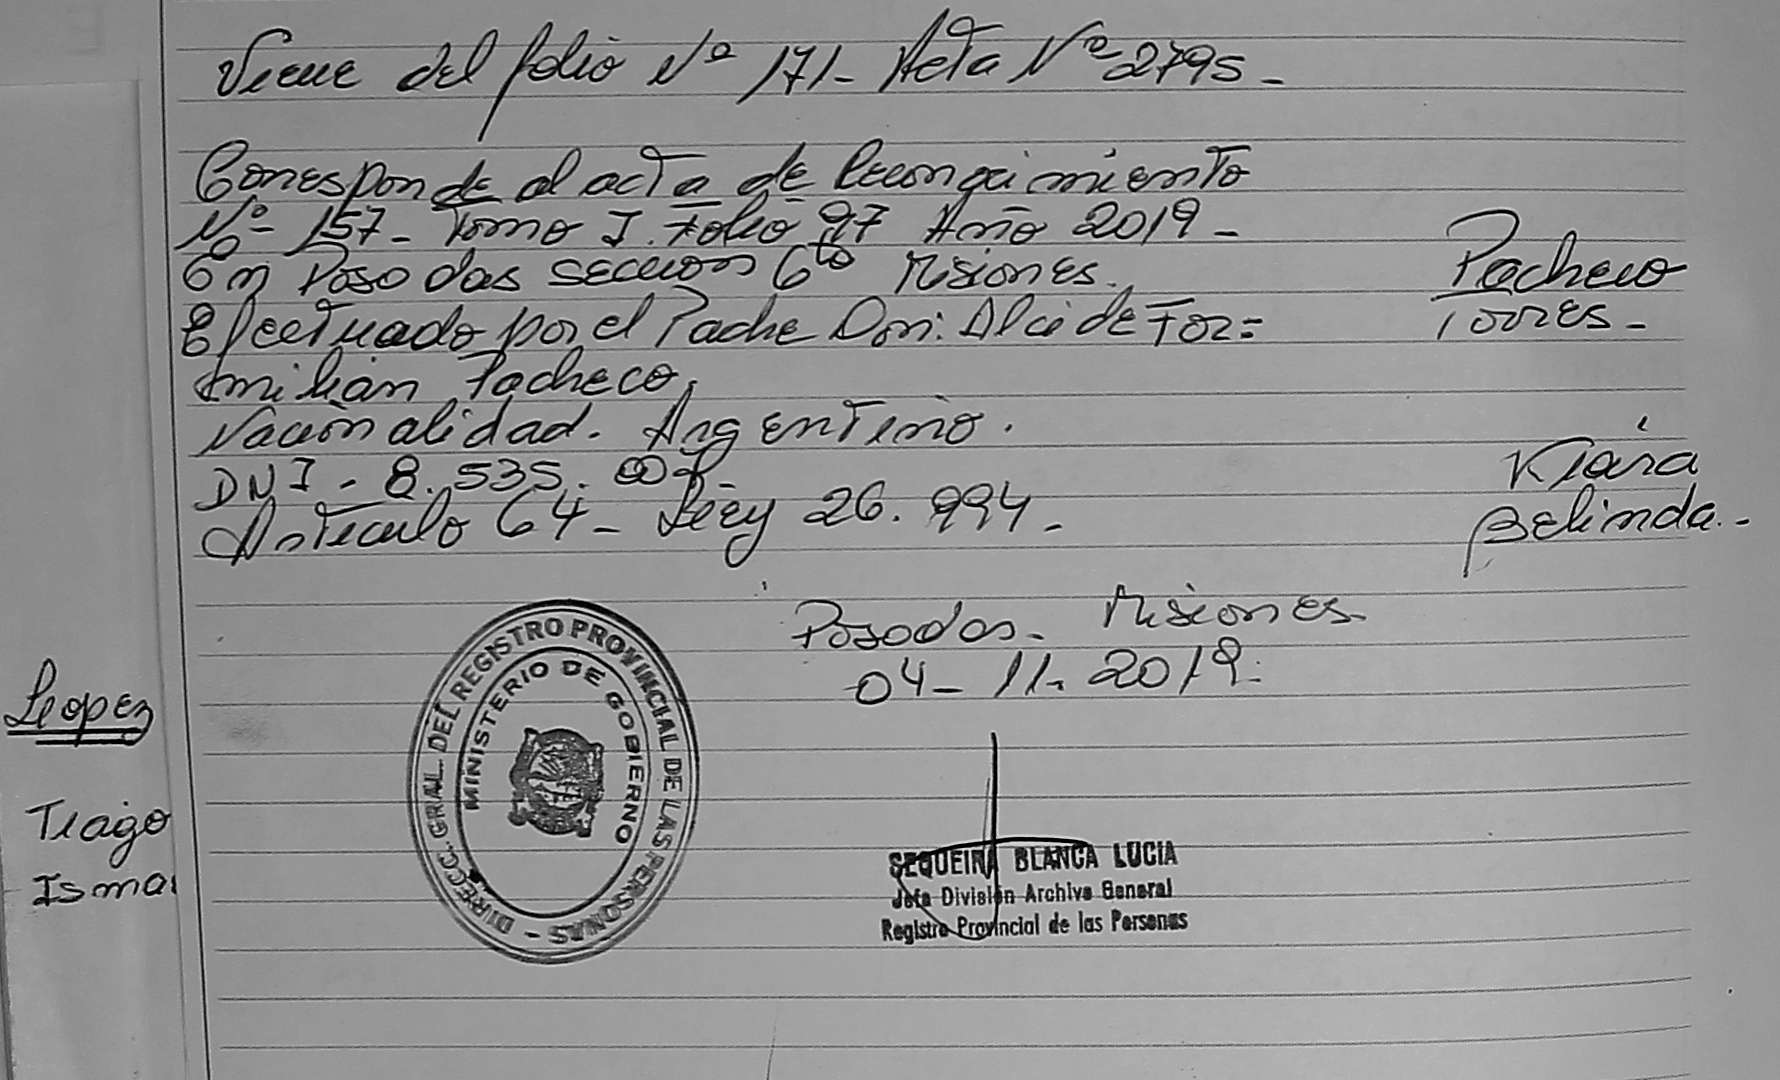 Viene del folio Nº 171- Acta Nº 2795-
Corresponde al acta de Reconocimiento
Nº- 157- Tomo I. Folio 97 Año 2019-
En Posadas seccion 6to Misiones.
Efectuado por el Padre Don: Alcide For=
Pacheco
Torres-
milian Pacheco,
Nacionalidad. Argentino.
DNI- 8.535.
Articulo 64- Ley 26.994-
Kiara
Belinda.-
Posadas- Misiones-
04-11-2019-
DIRECC. GRAL. DEL REGISTRO PROVINCIAL DE LAS PERSONAS -
MINISTERIO DE GOBIERNO
SEQUEIRA BLANCA LUCIA
Jefa División Archivo General
Registro Provincial de las Personas
Lopez
Tiago
Isma